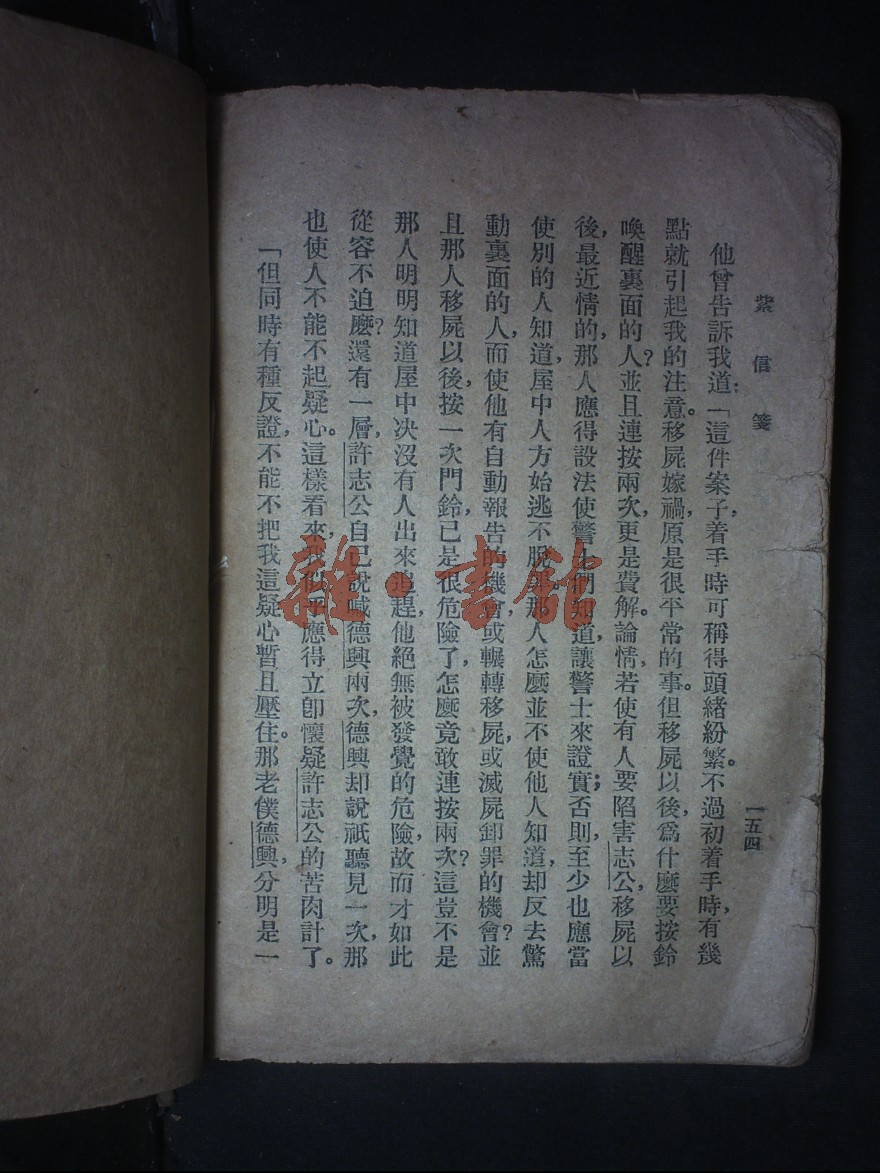 紫信箋
一五四
他曾告訴我道:「這件案子,着手時可稱得頭緒紛繁。不過初着手時,有幾
點就引起我的注意。移屍嫁禍,原是很平常的事。但移屍以後,爲什麼要按鈴
喚醒裏面的人?並且連按兩次,更是費解。論情,若使有人要陷害志公,移屍以
後,最近情的,那人應得設法使警士們知道,讓警士來證實;否則,至少也應當
使別的人知道,屋中人方始逃不脫。但那人怎麼並不使他人知道,却反去驚
動裏面的人,而使他有自動報告的機會,或輾轉移屍,或滅屍卸罪的機會?並
且那人移屍以後,按一次門鈴,已是很危險了,怎麼竟敢連按兩次?這豈不是
那人明明知道屋中决沒有人出來追趕,他絕無被發覺的危險,故而才如此
從容不迫麼?還有一層,許志公自己說喊德興兩次,德興却說祇聽見一次,那
也使人不能不起疑心。這樣看來,我似乎應得立卽懷疑許志公的苦肉計了。
「但同時有種反證,不能不把我這疑心暫且壓住。那老僕德興,分明是一
雜·書館